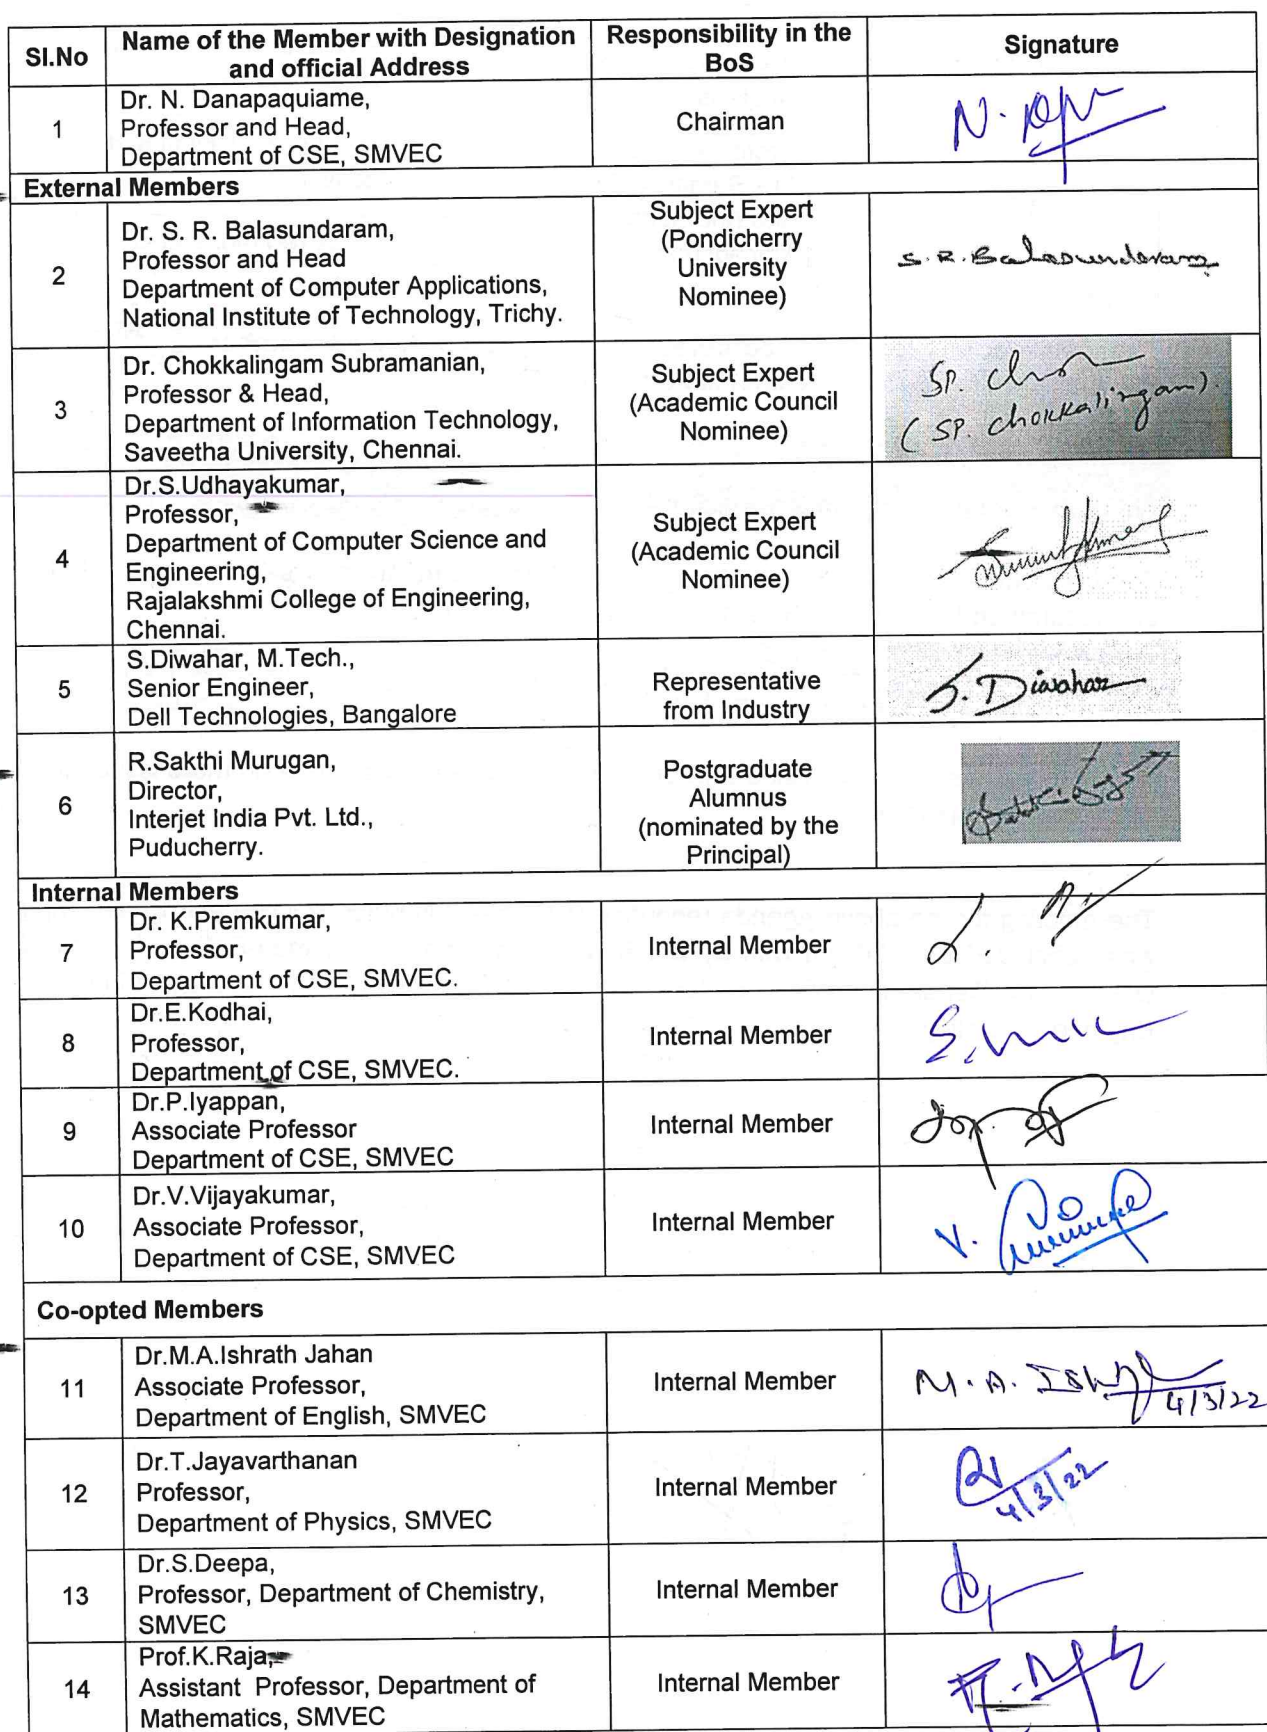 Sl.No
Name of the Member with Designation
and official Address
Responsibility in the
BoS
Signature
1
Dr. N. Danapaquiame,
Professor and Head,
Department of CSE, SMVEC
Chairman
N.
External Members
2
Dr. S. R. Balasundaram,
Professor and Head
Department of Computer Applications,
National Institute of Technology, Trichy.
Subject Expert
(Pondicherry
University
Nominee)
S. R. Balasundaram
3
Dr. Chokkalingam Subramanian,
Professor & Head,
Department of Information Technology,
Saveetha University, Chennai.
Subject Expert
(Academic Council
Nominee)
SP.
(SP. Chokkalingam).
4
Dr.S.Udhayakumar,
Professor,
Department of Computer Science and
Engineering,
Rajalakshmi College of Engineering,
Chennai.
Subject Expert
(Academic Council
Nominee)
5
S.Diwahar, M.Tech.,
Senior Engineer,
Dell Technologies, Bangalore
Representative
from Industry
S. Diwahar
6
R.Sakthi Murugan,
Director,
Interjet India Pvt. Ltd.,
Puducherry.
Postgraduate
Alumnus
(nominated by the
Principal)
Internal Members
7
Dr. K.Premkumar,
Professor,
Department of CSE, SMVEC.
Internal Member
8
Dr.E.Kodhai,
Professor,
Department of CSE, SMVEC.
Internal Member
9
Dr.P.Iyappan,
Associate Professor
Department of CSE, SMVEC
Internal Member
10
Dr.V.Vijayakumar,
Associate Professor,
Department of CSE, SMVEC
Internal Member
V.
Co-opted Members
11
Dr.M.A.Ishrath Jahan
Associate Professor,
Department of English, SMVEC
Internal Member
M. A.
4/3/22
12
Dr.T.Jayavarthanan
Professor,
Department of Physics, SMVEC
Internal Member
4/3/22
13
Dr.S.Deepa,
Professor, Department of Chemistry,
SMVEC
Internal Member
14
Prof.K.Raja,
Assistant Professor, Department of
Mathematics, SMVEC
Internal Member